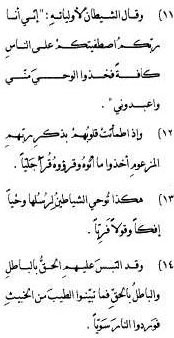 (١١) وقال الشيطانُ لأوليائِهِ: "إنّي أنا
ربُّكمُ اصطفيتُكمْ على الناسِ
كافةً فخذوا الوحيَ منّي
واعبدوني".
(١٢) وإذ اطمأنَّتْ قلوبُهمْ بذكرِ ربِّهمِ
المزعومِ أخذوا ما أتوهُ وقرؤوهُ قُرآناً جَليّاً.
(١٣) هكذا تُوحي الشياطينُ لرُسُلِها وَحْياً
إفكاً وقولاً فَرِيّاً.
(١٤) وقد التبسَ عليهمِ الحقُّ بالباطلِ
والباطلُ بالحقِّ فما تبيّنوا الطيبَ من الخبيثِ
فوَرَدوا النارَ سَوِيّاً.